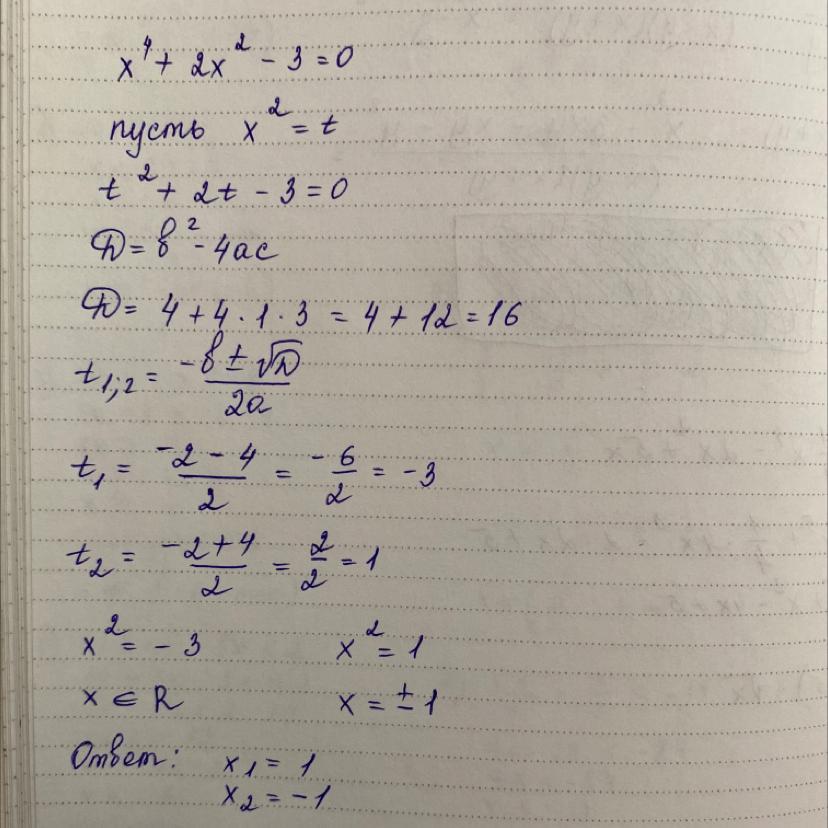 x⁴ + 2x² - 3 = 0
пусть x² = t
t² + 2t - 3 = 0
D = b² - 4ac
D = 4 + 4 · 1 · 3 = 4 + 12 = 16
t₁;₂ = (-b ± √D)/(2a)
t₁ = (-2 - 4)/2 = -6/2 = -3
t₂ = (-2 + 4)/2 = 2/2 = 1
x² = -3 x² = 1
x ∈ R x = ±1
Ответ: x₁ = 1
x₂ = -1